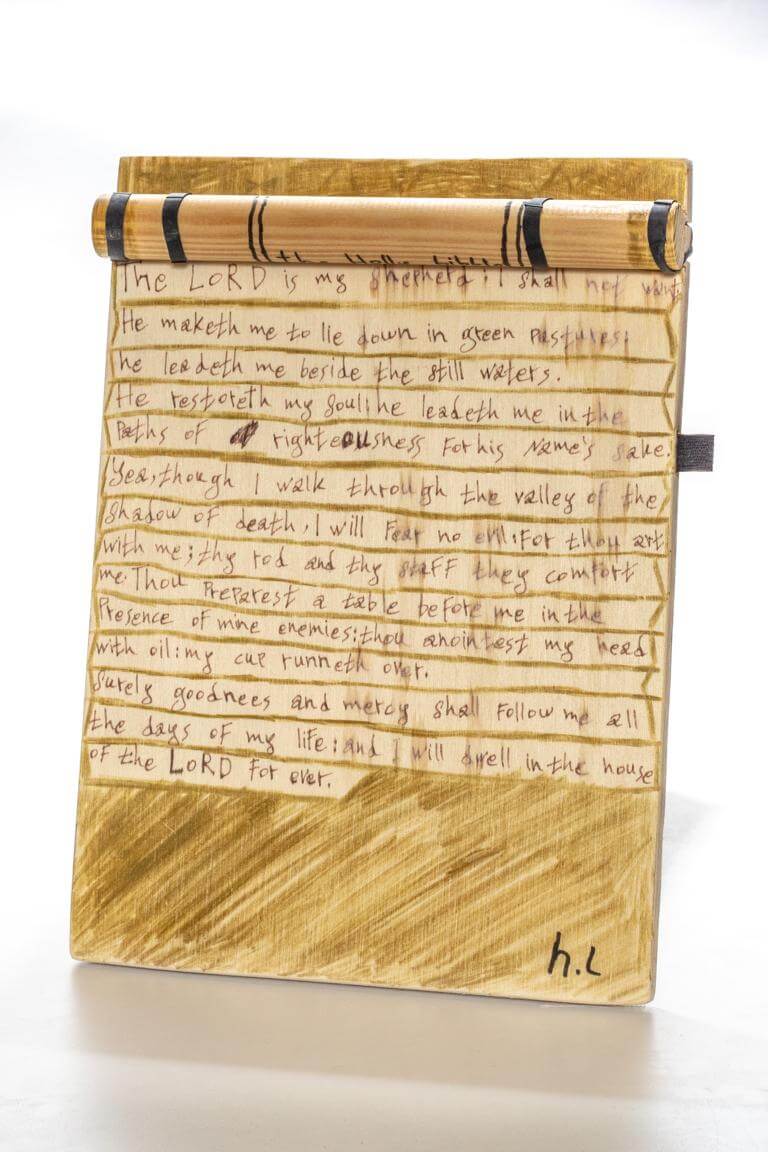 The LORD is my shepherd: I shall not want.
He maketh me to lie down in green pastures:
he leadeth me beside the still waters.
He restoreth my soul: he leadeth me in the
Paths of righteousness For his Name's sake.
Yea, though I walk through the valley of the
shadow of death, I will Fear no evil: For thou art
with me; thy rod and thy staFF they comfort
me. Thou Preparest a table before me in the
Presence of mine enemies: thou anointest my head
with oil: my cup runneth over.
Surely goodnees and mercy shall Follow me all
the days of my life: and I will dwell in the house
of the LORD For ever.
h.L